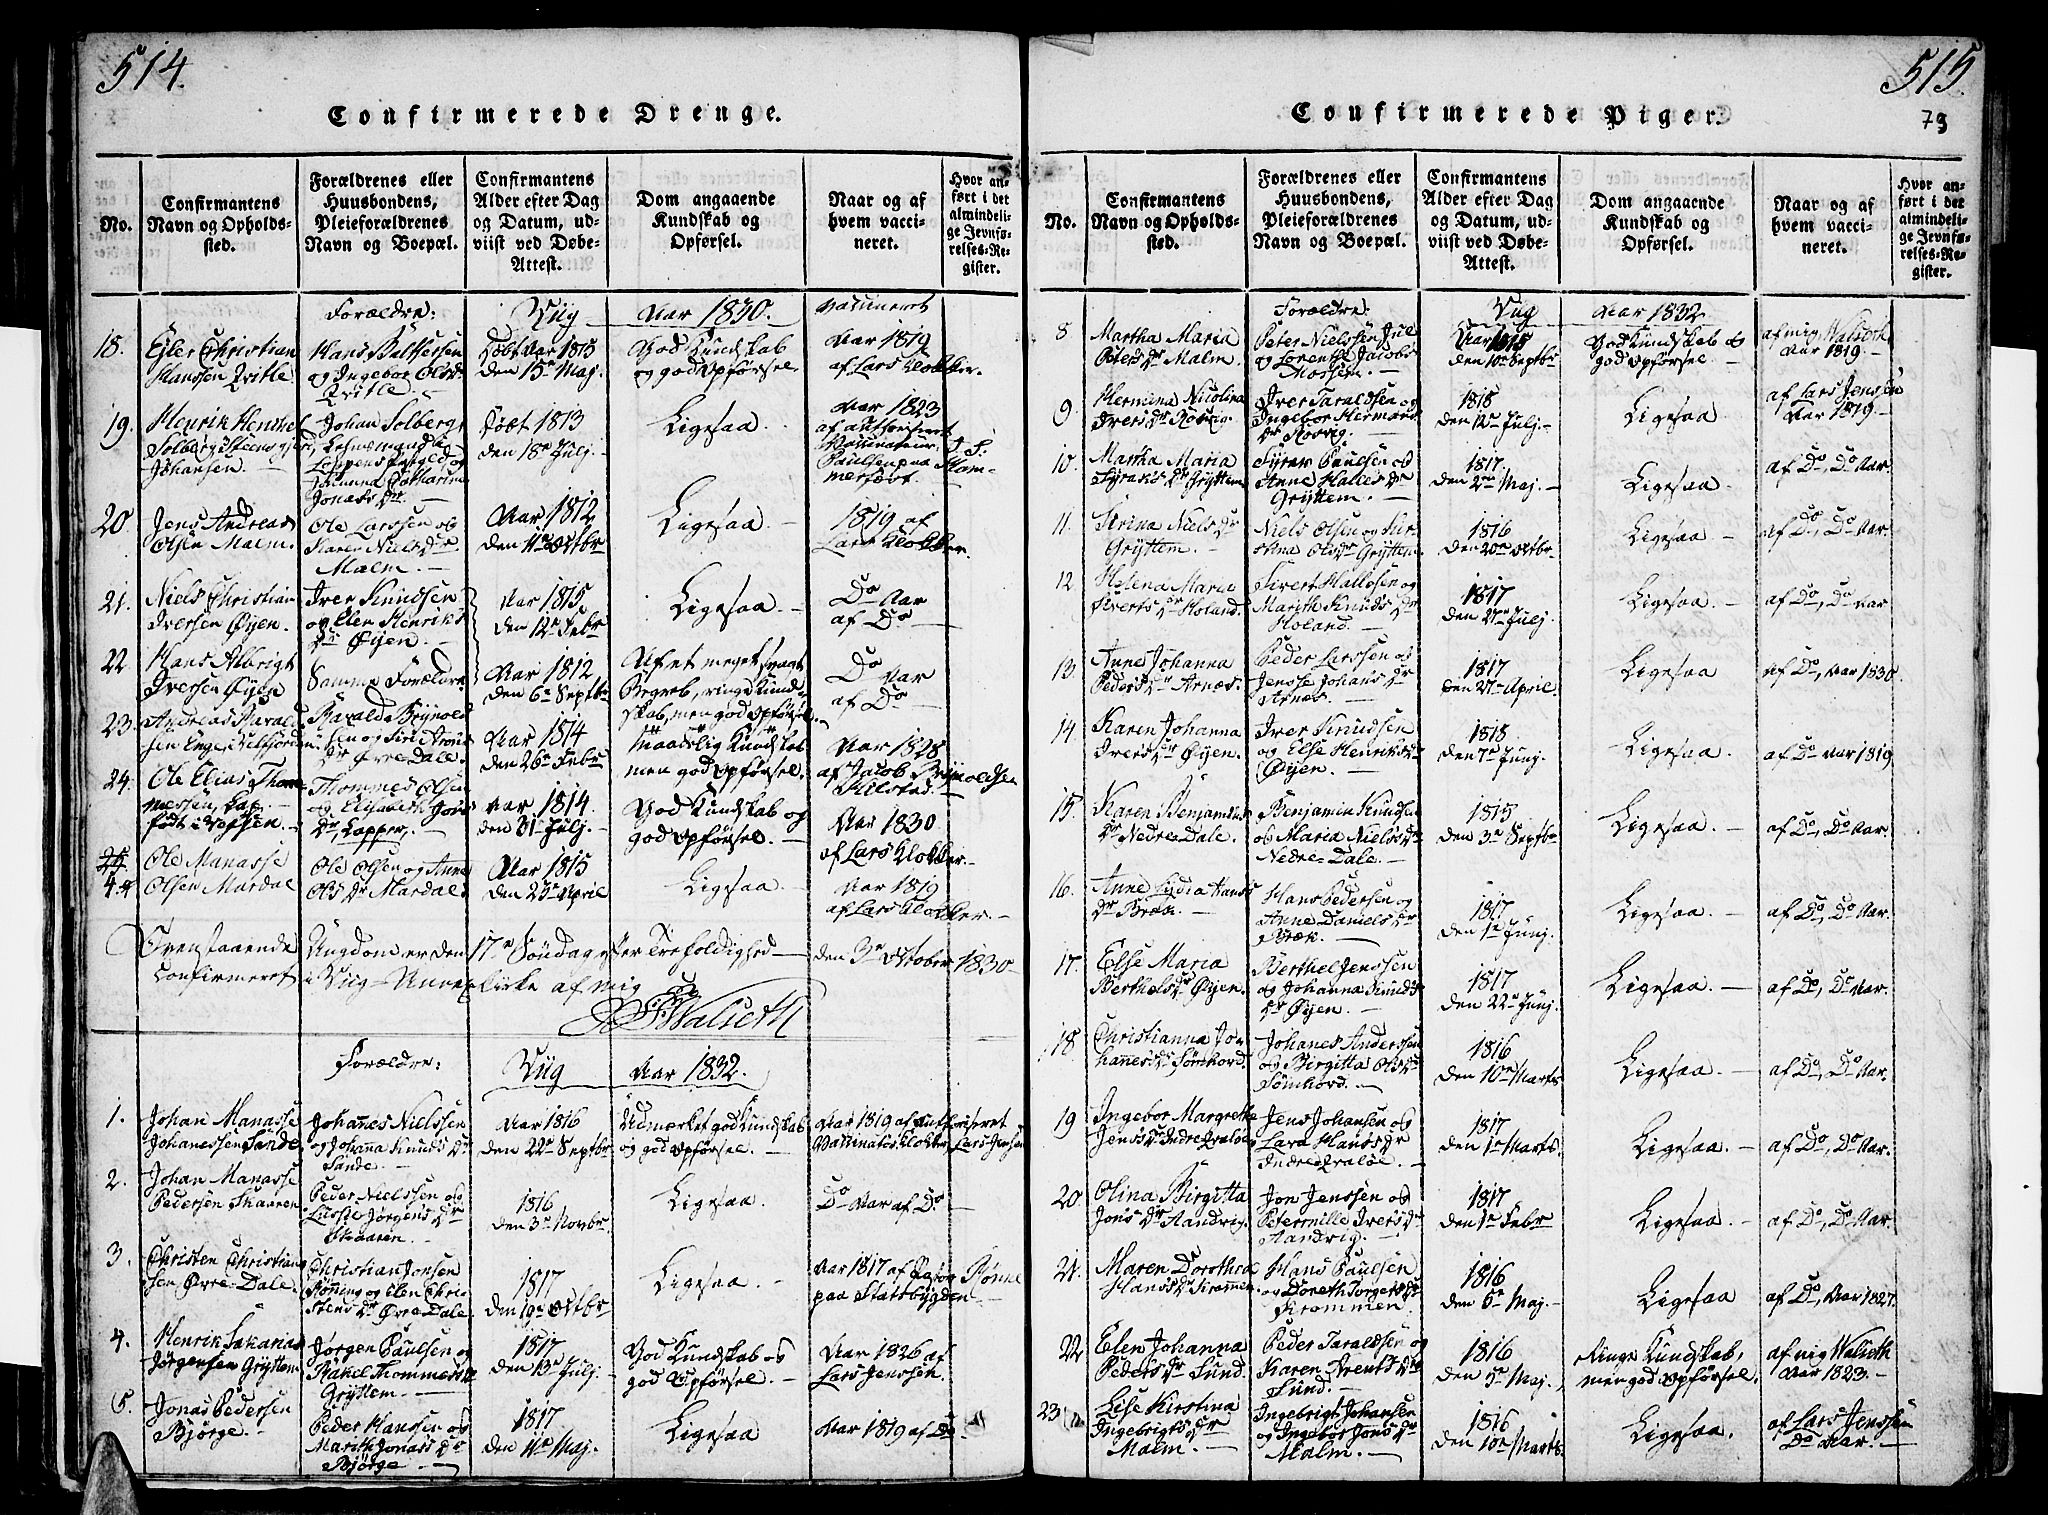 514.
Confirmerede Drenge.
No.
Confirmantens
Navn og Opholds-
sted.
Forældrenes eller
Huusbondens,
Pleieforældrenes
Navn og Boepæl.
Confirmantens
Alder efter Dag
og Datum, ud-
viist ved Døbe-
Attest.
Dom angaaende
Kundskab og
Opførsel.
Naar og af
hvem vacci-
neret.
Hvor an-
ført i det
almindeli-
ge Jevnfø-
relses-Re-
gister.
Forældre:
Viig
Aar 1830.
Vaccineret
18.
Ejler Christian
Hanssen
Hans Balthersen
og Ingebor Olsdr
Døbt Aar 1815
den 15de Maj.
God Kundskab
og god Opførsel.
Aar 1819
af Lars Klokker.
19.
Henrik
Solberg
Johansen
Johan Solberg
og
Catharina
Jonasdr
Født 1813
den 18de Julj.
Ligesaa
Aar 1823
af
Paulsen paa
20.
Jens Andreas
Olsen Malm.
Ole Larssen og
Karen Nielsdr
Malm.
Aar 1812
den 11te Octbr
Ligesaa.
1819 af
Lars Klokker.
21.
Niels Christian
Iversen Øyen.
Iver Knudsen
og Elen Henriks
dr Øyen.
Aar 1815
den 12te Febr
Ligesaa.
Do Aar
af Do
22
Hans Albrigt
Iversen Øyen
Samme Forældre
Aar 1812
den 6te Septbr
Af et meget svagt
Begreb, ringe Kund-
skab, men god Opførsel.
Do
Aar
af Do
23.
Andreas
sen Enge i Velfjorden
Brÿnold
sen og Siri
dr Øvre Dale.
Aar 1814
den 26de Febr
Maadelig Kundskab
men god Opførsel.
Aar 1828
af Jacob Brÿnoldsen
24.
Ole Elias Thom-
messen, Lap.
født i Vefsen.
Thommes Olsen
og Elisabeth
dr, Lapper.
Aar 1814.
den 31te Julj.
God Kundskab og
god Opførsel.
Aar 1830.
af Lars Klokker.
25
Ole Manasse
Olsen Mardal
Ole Olsen og Anne
Olsdr Mardal.
Aar 1815
den 23de April
Ligesaa.
Aar 1819
af Lars Klokker.
Ovenstaaende Ungdom er den 17de Søndag efter Trefoldighed den 3de October 1830
Confirmeret i Viig Annex-Kirke af mig
Walseth
Forældre:
Viig
Aar 1832.
1.
Johan Manasse
Johanessen Sande.
Johannes Nielsen
og Johanna Knudsdr
Sande.
Aar 1816
den 22de Septbr
Udmærket god Kundskab
og god Opførsel.
Aar 1819 af authoriseret
Vaccinatør Klokker Lars Jensen
2.
Johan Manasse
Pedersen Skaaren
Peder Nielssen og
Lussie Jørgensdr
Skaaren.
1816
den 3de Novbr
Ligesaa.
Do Aar af Do
3.
Christen Christian
sen Øvre Dale.
Christian Jonsen
Rønning og Elen Chri-
stensdr Øvre Dale.
1817
den 19de Octbr
Ligesaa.
Aar 1817 af
paa Stadsbygden
4.
Henrik Sakarias
Jørgensen Grÿttem
Jørgen Paulsen og
Rakel Thommesdr
Grÿttem.
1817
den 13de Julj.
God Kundskab og
god Opførsel.
Aar 1826 af
Lars Jenssen.
5.
Jonas Pedersen
Bjørge.
Peder Hanssen og
Marith Jonasdr
Bjørge
1817
den 11te Maj.
Ligesaa
Aar 1819 af Do
515.
79
Confirmerede Piger.
No.
Confirmantens
Navn og Opholds-
sted.
Forældrenes eller
Huusbondens,
Pleieforældrenes
Navn og Boepæl.
Confirmantens
Alder efter Dag
og Datum, ud-
viist ved Døbe-
Attest.
Dom angaaende
Kundskab og
Opførsel.
Naar og af
hvem vacci-
neret.
Hvor an-
ført i det
almindeli-
ge Jevnfø-
relses-Re-
gister.
Forældre:
Viig
Aar 1832.
8
Martha Maria
Petersdr Malm.
Peter Nielssen Juul
og Lorentha Jacobs
Mossem.
Aar 1815
den 10de Septbr
God Kundskab og
god Opførsel
af mig Walseth
Aar 1819.
9
Hermina Nicolina
Iversdr
Iver Taraldsen og
Ingebor Hermans
dr
1818
den 12te Julj.
Ligesaa
af Lars Jensen
Aar 1819
10.
Martha Maria
Grÿttem
Paulsen og
Anne Hallesdr
Grÿttem.
1817
den 2den Maj.
Ligesaa.
af Do, Do Aar
11.
Sirina Nielsdr
Grÿttem.
Niels Olsen og
Olsdr Grÿttem
1816
den 20de Octbr
Ligesaa.
af Do, Do Aar.
12
Helena Maria
Sivertsdr Holand.
Sivert Hallesen og
Marith Knudsdr
Holand.
1817
den 27de Julj.
Ligesaa.
af Do, Do Aar
13.
Anne Johanna
Pedersdr Arnæs.
Peder Larssen og
Jensse Johansdr
Arnæs.
1817
den 27de April.
Ligesaa
af Do, Aar 1830
14.
Karen Johanna
Iversdr Øyen.
Iver Knudsen
og Else Henriksdr
Øyen.
1818.
den 7de Junj.
Ligesaa.
af Do Aar 1819.
15.
Karen Benjamins
dr Nedre Dale.
Benjamin Knudsen
og Maria Nielsdr
Nedre-Dale.
1815
den 3de Septbr
Ligesaa.
af Do, Do Aar.
16.
Anne Lydia Hans
dr Bræk.
Hans Pedersen og
Anne Danielsdr
Bræk.
1817
den 1te Junj.
Ligesaa.
af Do, Do Aar.
17.
Else Maria
Berthelsdr Øyen.
Berthel Jenssen
og Johanna Knuds
dr Øyen.
1817
den 22de Junj.
Ligesaa.
af Do, Do Aar.
18
Christianna Jo-
hannesdr Sømhord.
Johanes Anderssen
og Birgitta Olsdr
Sømhord.
1816
den 10de Marts.
Ligesaa.
af Do, Do Aar.
19
Ingebor Margrethe
Jensdr Indre Qvaløe
Jens Johansen og
Lara Hansdr
Indre Qvaløe.
1817
den 1te Marts.
Ligesaa.
af Do, Do Aar.
20.
Olina Birgitta
Jonsdr Aandvig.
Jon Jenssen og
Peternille Iversdr
Aandvig.
1817
den 1te Febr
Ligesaa.
af Do, Do Aar.
21.
Maren Dorothea
Hansdr Krommen
Hans Paulsen
og Doreth Torgersdr
Krommen.
1816
den 5te Maj.
Ligesaa
af Do, Aar 1827.
22
Elen Johanna
Pedersdr Sund.
Peder Taraldsen og
Karen Arentsdr
Sund.
1816
den 5te Maj.
Ringe Kundskab,
men god Opførsel.
af mig Walseth
Aar 1823.
23
Lise Kirstina
Ingebrigtsdr
Malm
Ingebrigt Johansen
og Ingebor Jonsdr
Malm.
1816
den 10de Marts.
Ligesaa.
af Lars Jenssen
Do Aar.